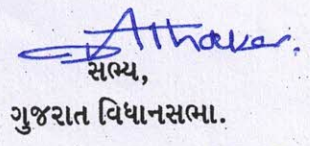 AThaker.
સભ્ય,
ગુજરાત વિધાનસભા.